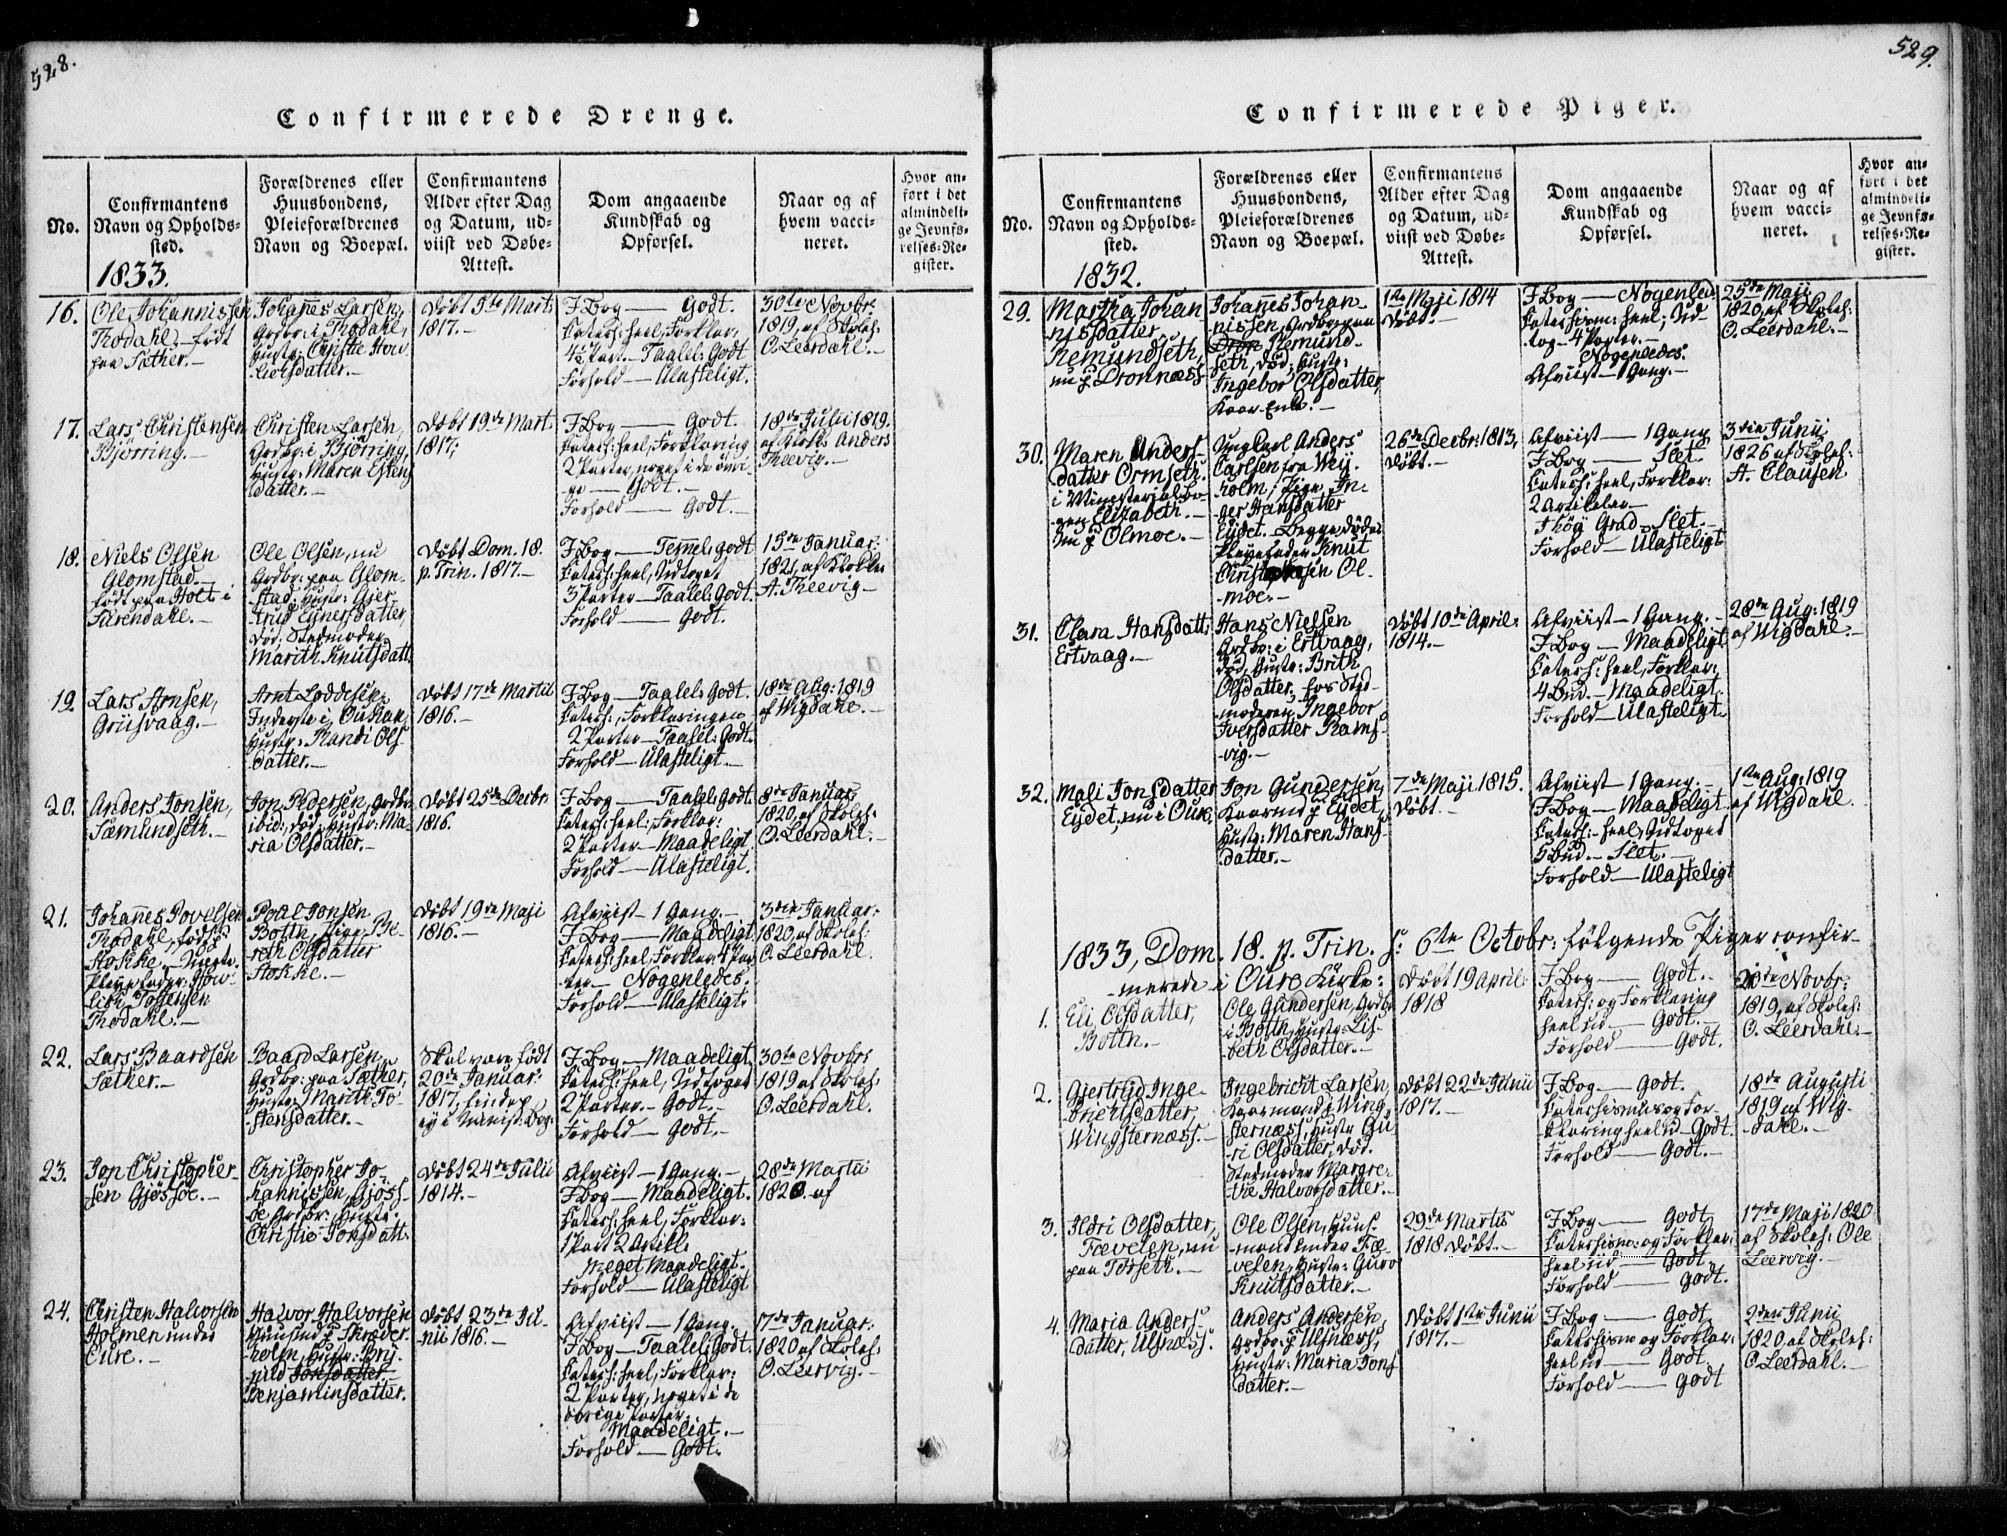 528.
Confirmerede Drenge.
No.
Confirmantens
Navn og Opholds-
sted.
1833.
Forældrenes eller
Huusbondens,
Pleieforældrenes
Navn og Boepæl.
Confirmantens
Alder efter Dag
og Datum, ud-
viist ved Døbe-
Attest.
Dom angaaende
Kundskab og
Opførsel.
Naar og af
hvem vacci-
neret.
Hvor an-
ført i det
almindeli-
ge Jevnfø-
relses-Re-
gister.
16.
Ole Johannissen
Thodahl, født
paa Sæther.-
Johañes Larsen,
Grdbr: i Thodahl,
Hustr: Christie How-
Døbt 5te Mart:
1817.-
I Bog - Godt.
Catech: heel, Forklar:
4½ Part.- Taalel: Godt
Forhold - Ulasteligt.
30te Novbr:
1819, af Skoleh:
O. Leerdahl.-
17.
Lars Christensen
Bjørring.-
Christen Larsen,
Grdbr: i Bjørring,
Hustr: Maren Estens
datter.-
Døbt 19de Mart:
1817,
I Bog - Godt.
Catech: heel, Forklaring
2 Parter, noget i de øvri-
ge - Godt.-
Forhold - Godt.-
18de Julii 1819.
af Klok: Anders
Theevig.-
18.
Niels Olsen
Glomstad.-
født paa Holt i
Surendahl.-
Ole Olsen, nu
Grdbr: paa Glom-
stad, Hustr: Gjer-
trud Ejnersdatter,
død, Stedmoder
Marith Knutsdatt:
Døbt Dom. 18.
p. Trin. 1817.-
I Bog - Temel: Godt
Catech: heel, Udtoget
3 Parter - Taalel: Godt.
Forhold - Godt.
15de Januar:
1821, af Klokker
A. Theevig-
19.
Lars Arnsen,
Griisvaag.-
Arnt Loddesen,
Inderste i
Hustr: Randi Ols
datter.-
Døbt 17de Martii
1816.-
I Bog - Taalel: Godt.
Catech:, Forklaringen
2 Parter - Taalel: Godt.
Forhold - Ulasteligt.-
18de Aug: 1819
af Wigdahl.-
20.
Anders Jonsen,
Sæmundseth.-
Jon Pedersen, Grdbr:
ibid:, død, Hustr: Ma-
ria Olsdatter.-
Døbt 25de Decbr:
1816.
I Bog - Taalel: Godt.
Catech: heel, Forklar:
2 Parter - Maadeligt
Forhold - Ulasteligt.
8de Januar:
1820, af Skoleh:
O. Leerdahl.-
21.
Johañes Povelsen
Thodahl, født p
Stokke.-
Pleiefader: How-
Thodahl.-
Povel Jonsen
Bottn, Pige Be-
reth Olsdatter
Stokke.-
Døbt 19de Maji
1816.-
Afviist - 1 Gang.-
I Bog - Maadeligt
Catech: heel, Forklar: 4 Par
ter - Nogenledes.
Forhold - Ulasteligt.
3die Januar:
1820, af Skoleh:
O. Leerdahl.
22.
Lars Baardsen
Sæther.-
Baard Larsen,
Grdbr: paa Sæther,
Hustr: Marith To-
stensdatter.-
Skal være født
20de Januar:
1817, findes
ej i Minist: Bog:
I Bog - Maadeligt
Catech: heel, Udtoget
2 Parter.- Godt.-
Forhold - Godt.-
30te Novbr:
1819 af Skoleh:
O. Leerdahl.
23.
Jon Christopher-
sen Gjøssøe.-
Christopher Jo-
hannissen, Gjøss-
øe Grdbr:, Hustr:
Christie Jonsdatt:
Døbt 24de Julii
1814.-
Afviist - 1 Gang.-
I Bog - Maadeligt.
Catech: heel, Forklar:
1 Part 2 Artikl:
meget Maadeligt.-
Forhold - Ulasteligt
28de Martii
1820. af
24.
Christen Halvorsen
Holmen under
Eure.-
Halvor Halvorsen
Huusmd p Skræder-
holm, Hustr: Bry-
nild Jonsdatter.-
Benjaminsdatter.
Døbt 23de Ju-
nii 1816.-
Afviist - 1 Gang.
I Bog - Taalel: Godt.
Catech: heel, Forklar:
2 Parter, noget i de
øvrige Parter.
Maadeligt.-
Forhold - Godt.
7de Januar:
1820 af Skoleh:
O. Leervig.-
529.
Confirmerede Piger.
No.
Confirmantens
Navn og Opholds-
sted.
1832.
Forældrenes eller
Huusbondens,
Pleieforældrenes
Navn og Boepæl.
Confirmantens
Alder efter Dag
og Datum, ud-
viist ved Døbe-
Attest.
Dom angaaende
Kundskab og
Opførsel.
Naar og af
hvem vacci-
neret.
Hvor an-
ført i det
almindeli-
ge Jevnfø-
relses-Re-
gister.
29.
Martha Johan
nisdatter
Remundseth,
nu p Dronnæss
Johañes Johan-
nissen, Grdbr: paa
Dron Remund-
seth, død, Hustr:
Ingebor Olsdatter,
Kaar Enke.-
1te Maji 1814
Døbt.-
I Bog - Nogenled:
Catechism: heel, Ud-
tog - 4 Parter.-
Nogenledes.
Afviist - 1 Gang.-
25de Maji
1820, af Skoleh:
O. Leerdahl.-
30.
Maren Anders-
datter Ormseth.
i Ministerialbo-
gen Elizabeth.-
nu p Olmoe.-
Ungkarl Anders
Carlsen fra Wej-
holm, Pige In-
ger Hansdatter
Eydet.- Begge døde.
Plejefader Knut
Christophersen Ol-
moe.-
26de Decbr: 1813,
Døbt.-
Afviist - 1 Gang
I Bog - Slet.
Catech: heel, Forklar:
2 Artikler-
I høj Grad Slet.-
Forhold - Ulasteligt
3die Junii
1826 af Skoleh:
A. Clausen
31.
Clara Hansdatt:
Ertvaag.-
Hans Nielsen
Grdbr: i Ertvaag,
død, Hustr: Brith
Olsdatter, hos Sted-
moderen Ingebor
Iversdatter Rams-
vig.-
Døbt 10de April:
1814.-
Afviist - 1 Gang.-
I Bog - Maadeligt
Catech: heel, Forklar:
4 Bud.- Maadeligt.
Forhold - Ulasteligt
28de Aug: 1819
af Wigdahl.-
32.
Mali Jonsdatter
Eydet, nu i Oure.
Jon Gundersen,
Kaarmd p Eydet,
Hustr: Maren Hans-
datter.-
7de Maji 1815.
Døbt.-
Afviist - 1 Gang.-
I Bog - Maadeligt
Catech:- heel, Udtoget
5 Bud.- Slet.-
Forhold - Ulasteligt
1te Aug: 1819
af Wigdahl.
1833, Dom. 18. p. Trin. s: 6te Octobr: følgende Piger confir-
merede i Oure Kirke:
1.
Eli Olsdatter,
Bottn.-
Ole Gundersen, Grdbr
i Bottn, Hustr: Lis-
beth Olsdatter.-
Døbt 19 April:
1818
I Bog - Godt.-
Catech: og Forklaring
heel ud - Godt.-
Forhold - Godt.
Novbr:
1819, af Skoleh:
O. Leerdahl.-
2.
Gjertrud Inge-
brichtsdatter,
Wingsternæss.-
Ingebricht Larsen,
Kaarmand p Wing-
sternæss, Hustr: Gu-
ri Olsdatter, død.
Stedmoder Margre-
the Halvorsdatter.-
Døbt 22de Junii
1817.-
I Bog - Godt.
Catechismus og For-
klaring heel ud - Godt.
Forhold - Godt.-
18de Augusti
1819 af Wig-
dahl.-
3.
Ildri Olsdatter,
Fævelen, nu
paa Torseth.-
Ole Olsen, Huus-
mand under Fæ-
velen, Hustr: Guro
Knutsdatter.-
29de Martii
1818 Døbt.-
I Bog - Godt
Catechism: og Forklar:
heel ud - Godt.
Forhold - Godt.
17de Maji 1820
af Skoleh: Ole
Leervig.-
4.
Maria Anders-
datter, Ulsnæss.
Anders Andersen,
Grdbr: p Ulsnæss,
Hustr: Maria Jons
datter.-
Døbt 1te Junii
1817.-
I Bog - Godt
Catechism og Forklar:
heel ud - Godt.
Forhold - Godt
2den Junii
1820 af Skoleh:
O. Leerdahl.-